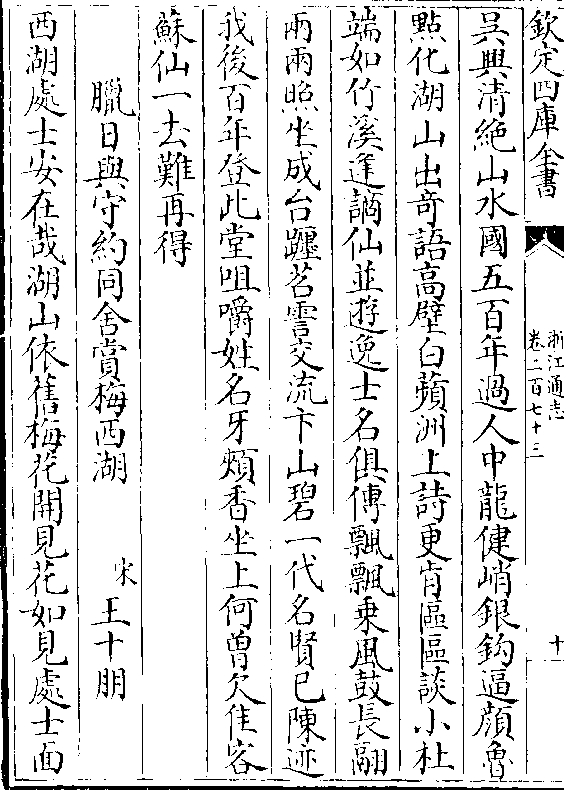 欽定四庫全書
浙江通志
卷二百七十三
十
吳興清絶山水國五百年過人中龍健峭銀鈎逼顔魯
點化湖山出竒語高壁白蘋洲上詩更肯區區談小杜
端如竹溪逢謫仙並遊逸士名俱傳飄飄乗風鼓長翮
兩兩照坐成台躔苕霅交流卞山碧一代名賢已陳迹
我後百年登此堂咀嚼姓名牙頰香坐上何曾欠佳客
蘇仙一去難再得
臘日與守約同舍賞梅西湖
宋 王十朋
西湖處士安在哉湖山依舊梅花開見花如見處士面